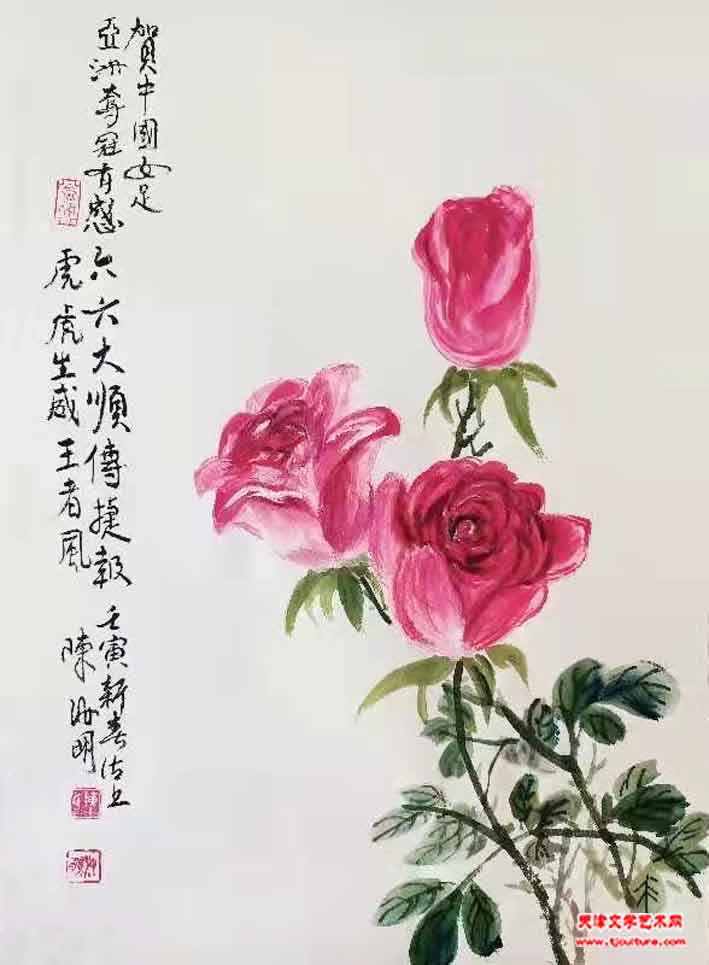 賀中國女足
亞洲奪冠有感
六六大順傳捷報
虎虎生威王者風
壬寅新春沽上
陳海明
天津文学艺术网
www.tjculture.com